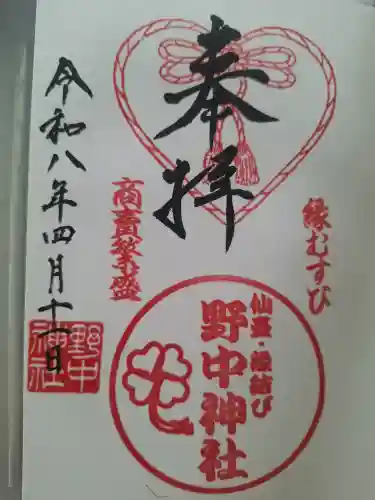 奉拝
縁むすび
商売繁盛
令和八年四月十一日
仙臺・縁結び
野中神社
野中
神社